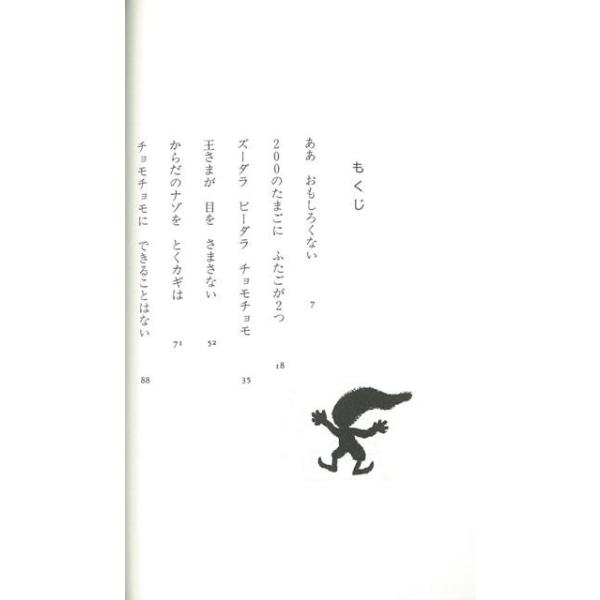 もくじ
ああ　おもしろくない　7
200のたまごに　ふたごが2つ　18
ズーダラ　ピーダラ　チョモチョモ　35
王さまが　目を　さまさない　52
からだのナゾを　とくカギは　71
チョモチョモに　できることはない　88